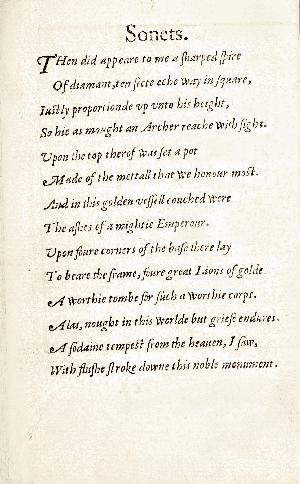 Sonets.
THen did appeare to me a sharped spire
Of diamant, ten feete eche way in square,
Iustly proportionde up unto his height,
So hie as mought an Archer reache with sight.
Upon the top therof was set a pot
Made of the mettall that we honour most.
And in this golden vessell couched were
The ashes of a mightie Emperour.
Upon foure corners of the base there lay
To beare the frame, foure great Lions of golde.
A worthie tombe for such a worthie corps.
Alas, nought in this worlde but griefe endures.
A sodaine tempest from the heaven, I saw,
With flushe stroke downe this noble monument.